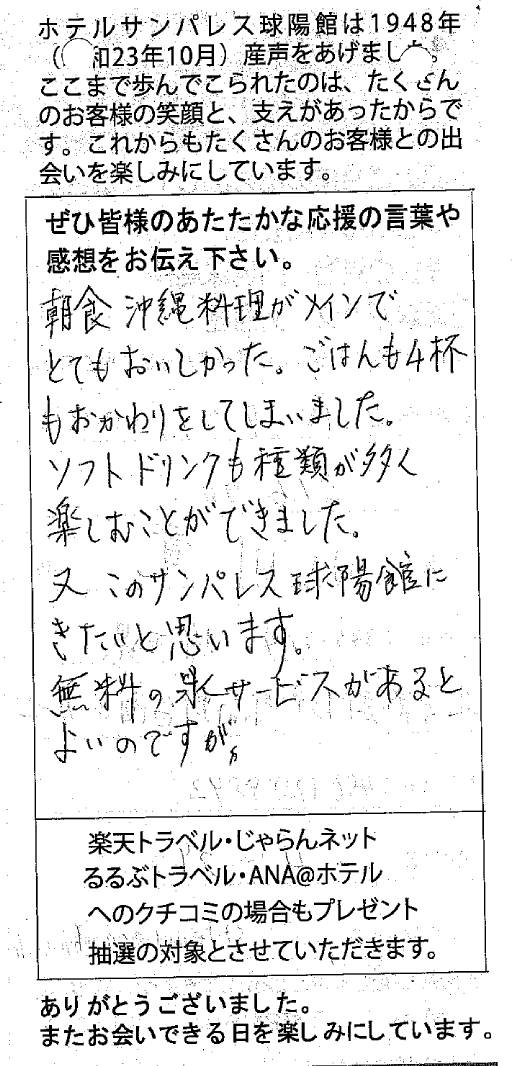 ホテルサンパレス球陽館は1948年
（ 和23年10月）産声をあげまし 。
ここまで歩んでこられたのは、たくさん
のお客様の笑顔と、支えがあったからで
す。これからもたくさんのお客様との出
会いを楽しみにしています。
ぜひ皆様のあたたかな応援の言葉や
感想をお伝え下さい。
朝食 沖縄料理がメインで
とてもおいしかった。ごはんも4杯
もおかわりをしてしまいました。
ソフトドリンクも種類が多く
楽しむことができました。
又 このサンパレス球陽館に
きたいと思います。
無料の氷サービスがあると
よいのですが、
楽天トラベル・じゃらんネット
るるぶトラベル・ANA@ホテル
へのクチコミの場合もプレゼント
抽選の対象とさせていただきます。
ありがとうございました。
またお会いできる日を楽しみにしています。